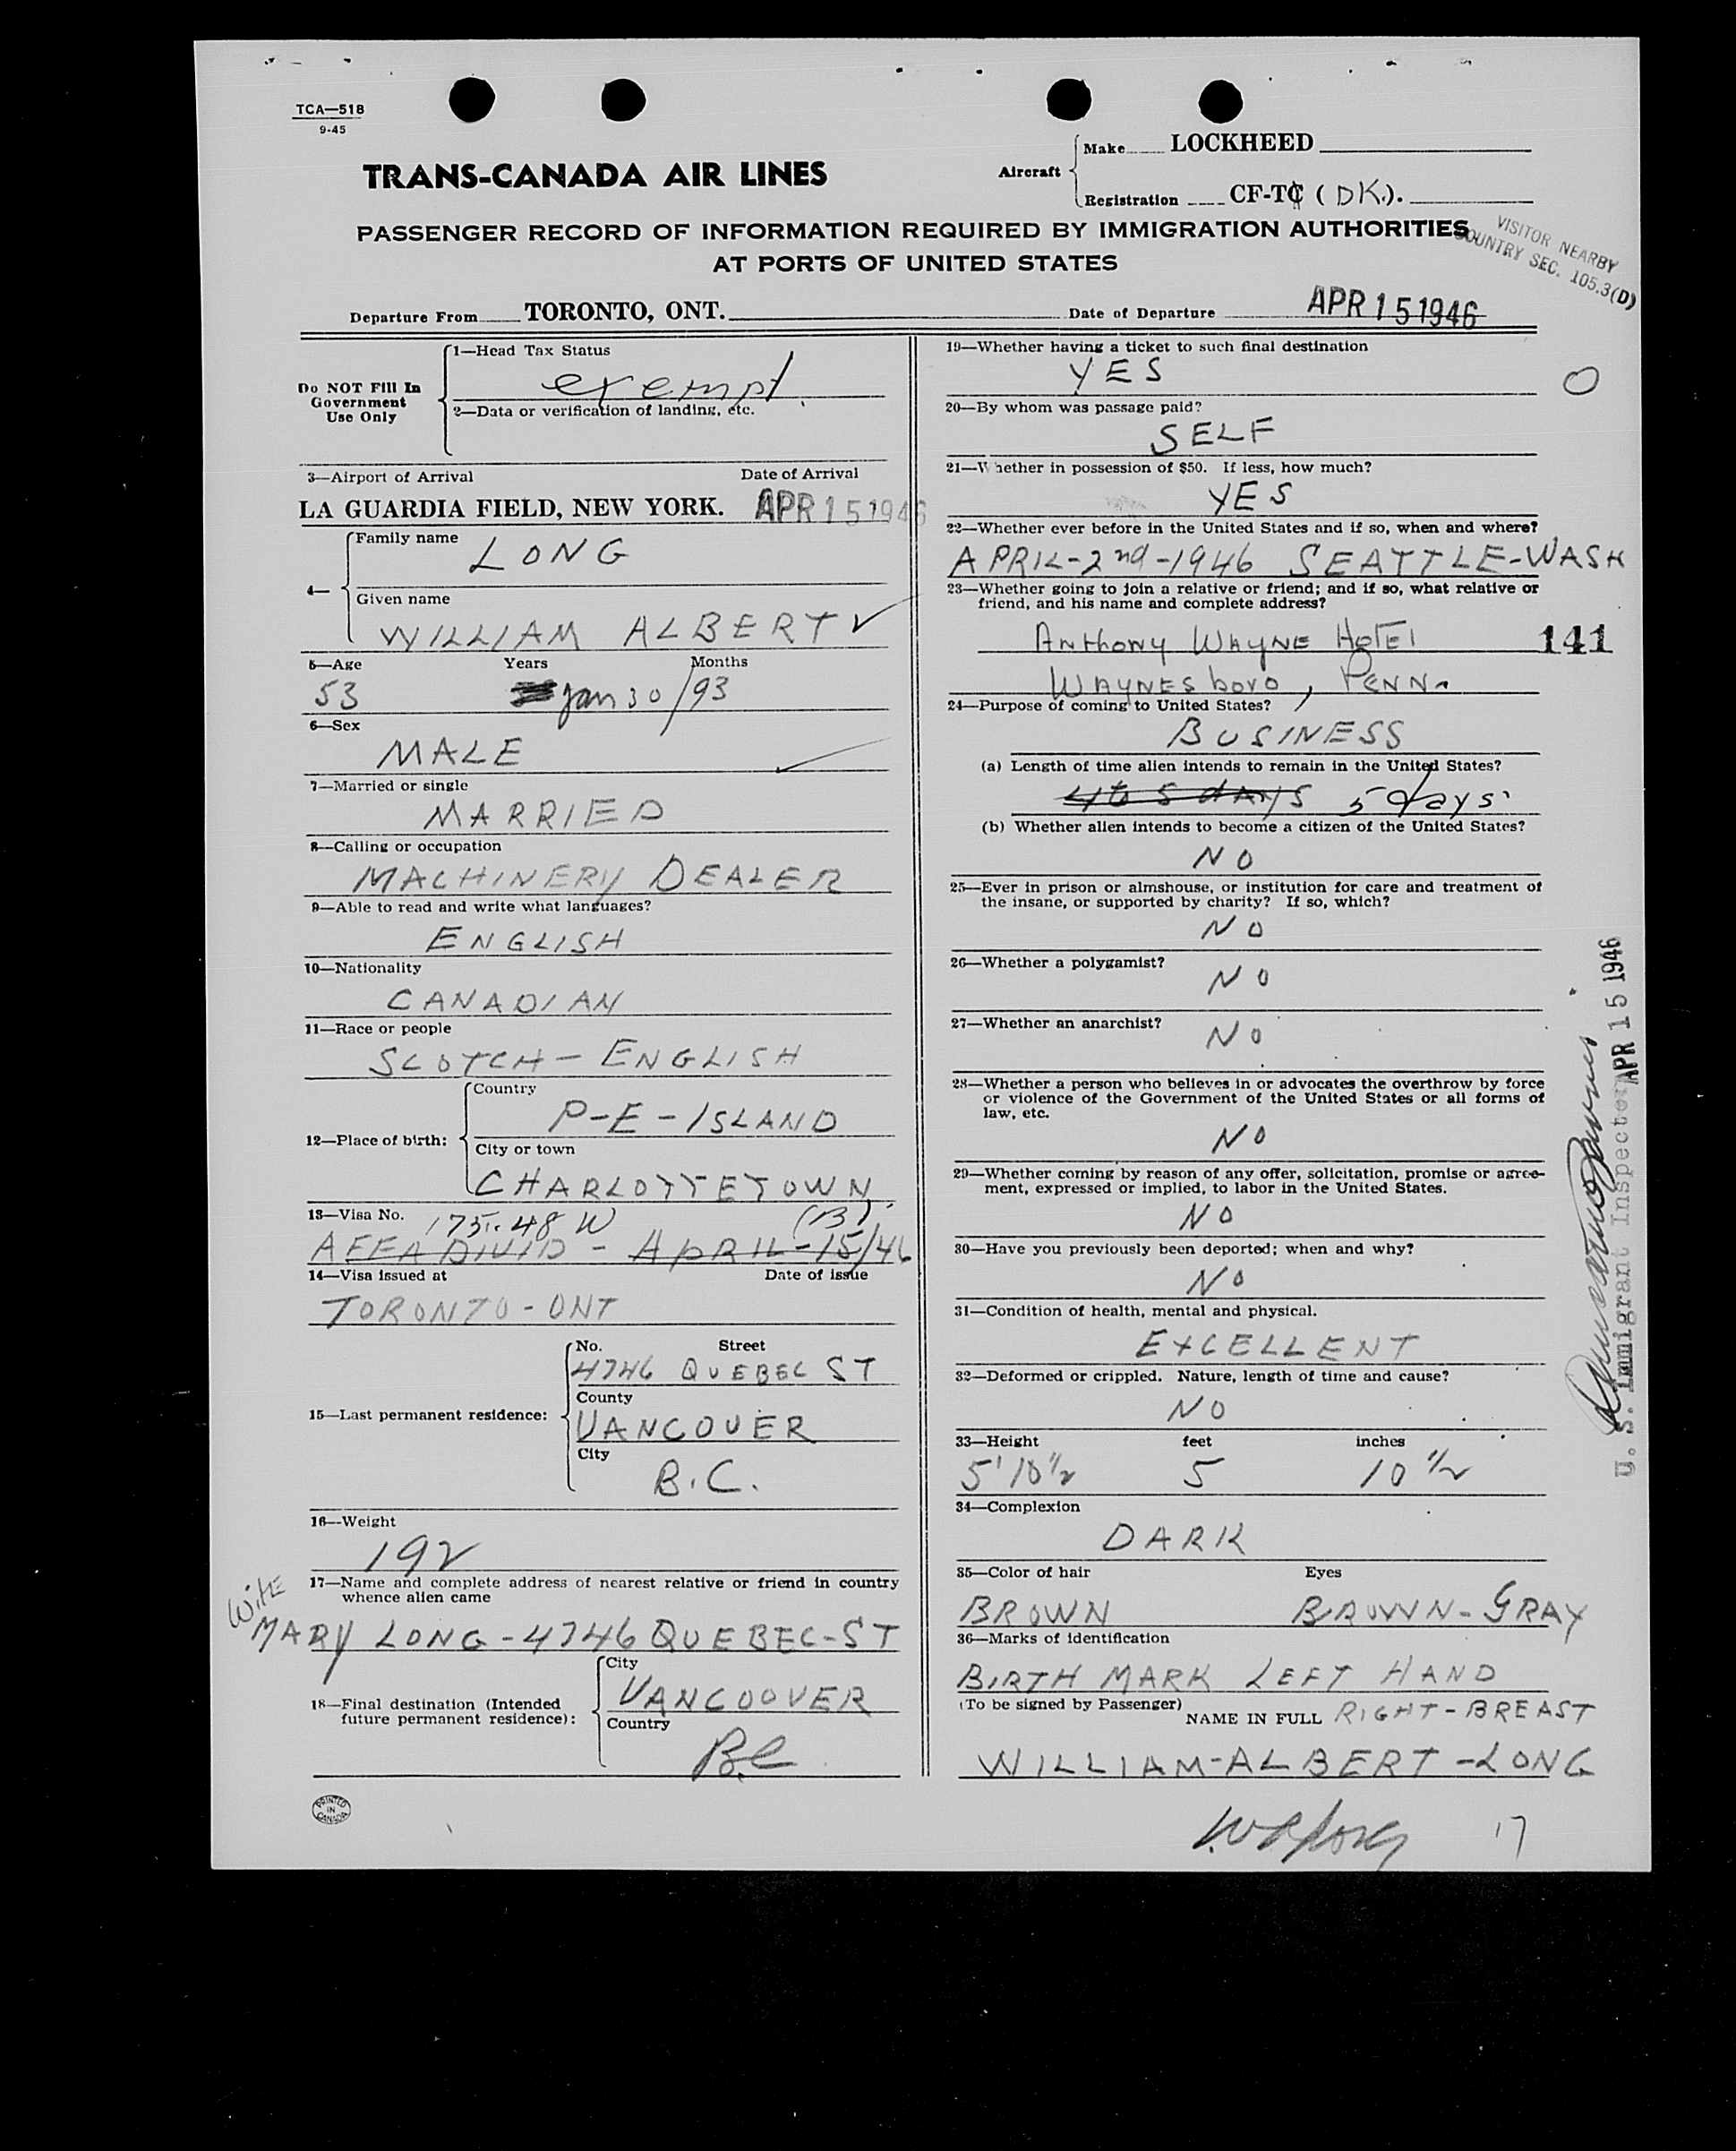 TCA—518
9-45
TRANS-CANADA AIR LINES
Aircraft
Make LOCKHEED
Registration CF-TC ( DK.).
PASSENGER RECORD OF INFORMATION REQUIRED BY IMMIGRATION AUTHORITIES
AT PORTS OF UNITED STATES
VISITOR NEARBY
COUNTRY SEC. 105.3(D)
Departure From TORONTO, ONT. Date of Departure APR 15 1946
Do NOT Fill In
Government
Use Only
1—Head Tax Status
exempt
2—Data or verification of landing, etc.
3—Airport of Arrival Date of Arrival
LA GUARDIA FIELD, NEW YORK. APR 15 1946
4—
Family name
LONG
Given name
WILLIAM ALBERT
5—Age Years Months
53 Jan 30/93
6—Sex
MALE
7—Married or single
MARRIED
8—Calling or occupation
MACHINERY DEALER
9—Able to read and write what languages?
ENGLISH
10—Nationality
CANADIAN
11—Race or people
SCOTCH - ENGLISH
12—Place of birth:
Country
P-E-ISLAND
City or town
CHARLOTTETOWN
13—Visa No. 175.48 W (B)
AFFADIVID - APRIL-15/46
14—Visa issued at Date of issue
TORONTO - ONT
15—Last permanent residence:
No. Street
4746 QUEBEC ST
County
VANCOUER
City
B.C.
16—Weight
192
17—Name and complete address of nearest relative or friend in country
whence alien came
Wife
MARY LONG - 4746 QUEBEC-ST
18—Final destination (Intended
future permanent residence):
City
VANCOOVER
Country
B.C
PRINTED
IN
CANADA
19—Whether having a ticket to such final destination
YES
O
20—By whom was passage paid?
SELF
21—Whether in possession of $50. If less, how much?
YES
22—Whether ever before in the United States and if so, when and where?
APRIL-2nd-1946 SEATTLE-WASH
23—Whether going to join a relative or friend; and if so, what relative or
friend, and his name and complete address?
Anthony WAYNE HOTEL 141
WAYNESboro, PENN.
24—Purpose of coming to United States?
BUSINESS
(a) Length of time alien intends to remain in the United States?
4 to 5 dAYS 5 days
(b) Whether alien intends to become a citizen of the United States?
NO
25—Ever in prison or almshouse, or institution for care and treatment of
the insane, or supported by charity? If so, which?
NO
26—Whether a polygamist?
NO
27—Whether an anarchist?
NO
28—Whether a person who believes in or advocates the overthrow by force
or violence of the Government of the United States or all forms of
law, etc.
NO
29—Whether coming by reason of any offer, solicitation, promise or agree-
ment, expressed or implied, to labor in the United States.
NO
30—Have you previously been deported; when and why?
NO
31—Condition of health, mental and physical.
EXCELLENT
32—Deformed or crippled. Nature, length of time and cause?
NO
33—Height feet inches
5' 10 1/2 5 10 1/2
34—Complexion
DARK
35—Color of hair Eyes
BROWN BROWN-GRAY
36—Marks of identification
BIRTH MARK LEFT HAND
(To be signed by Passenger) NAME IN FULL RIGHT-BREAST
WILLIAM-ALBERT-LONG
W A Long 17
U. S. Immigrant Inspector APR 15 1946